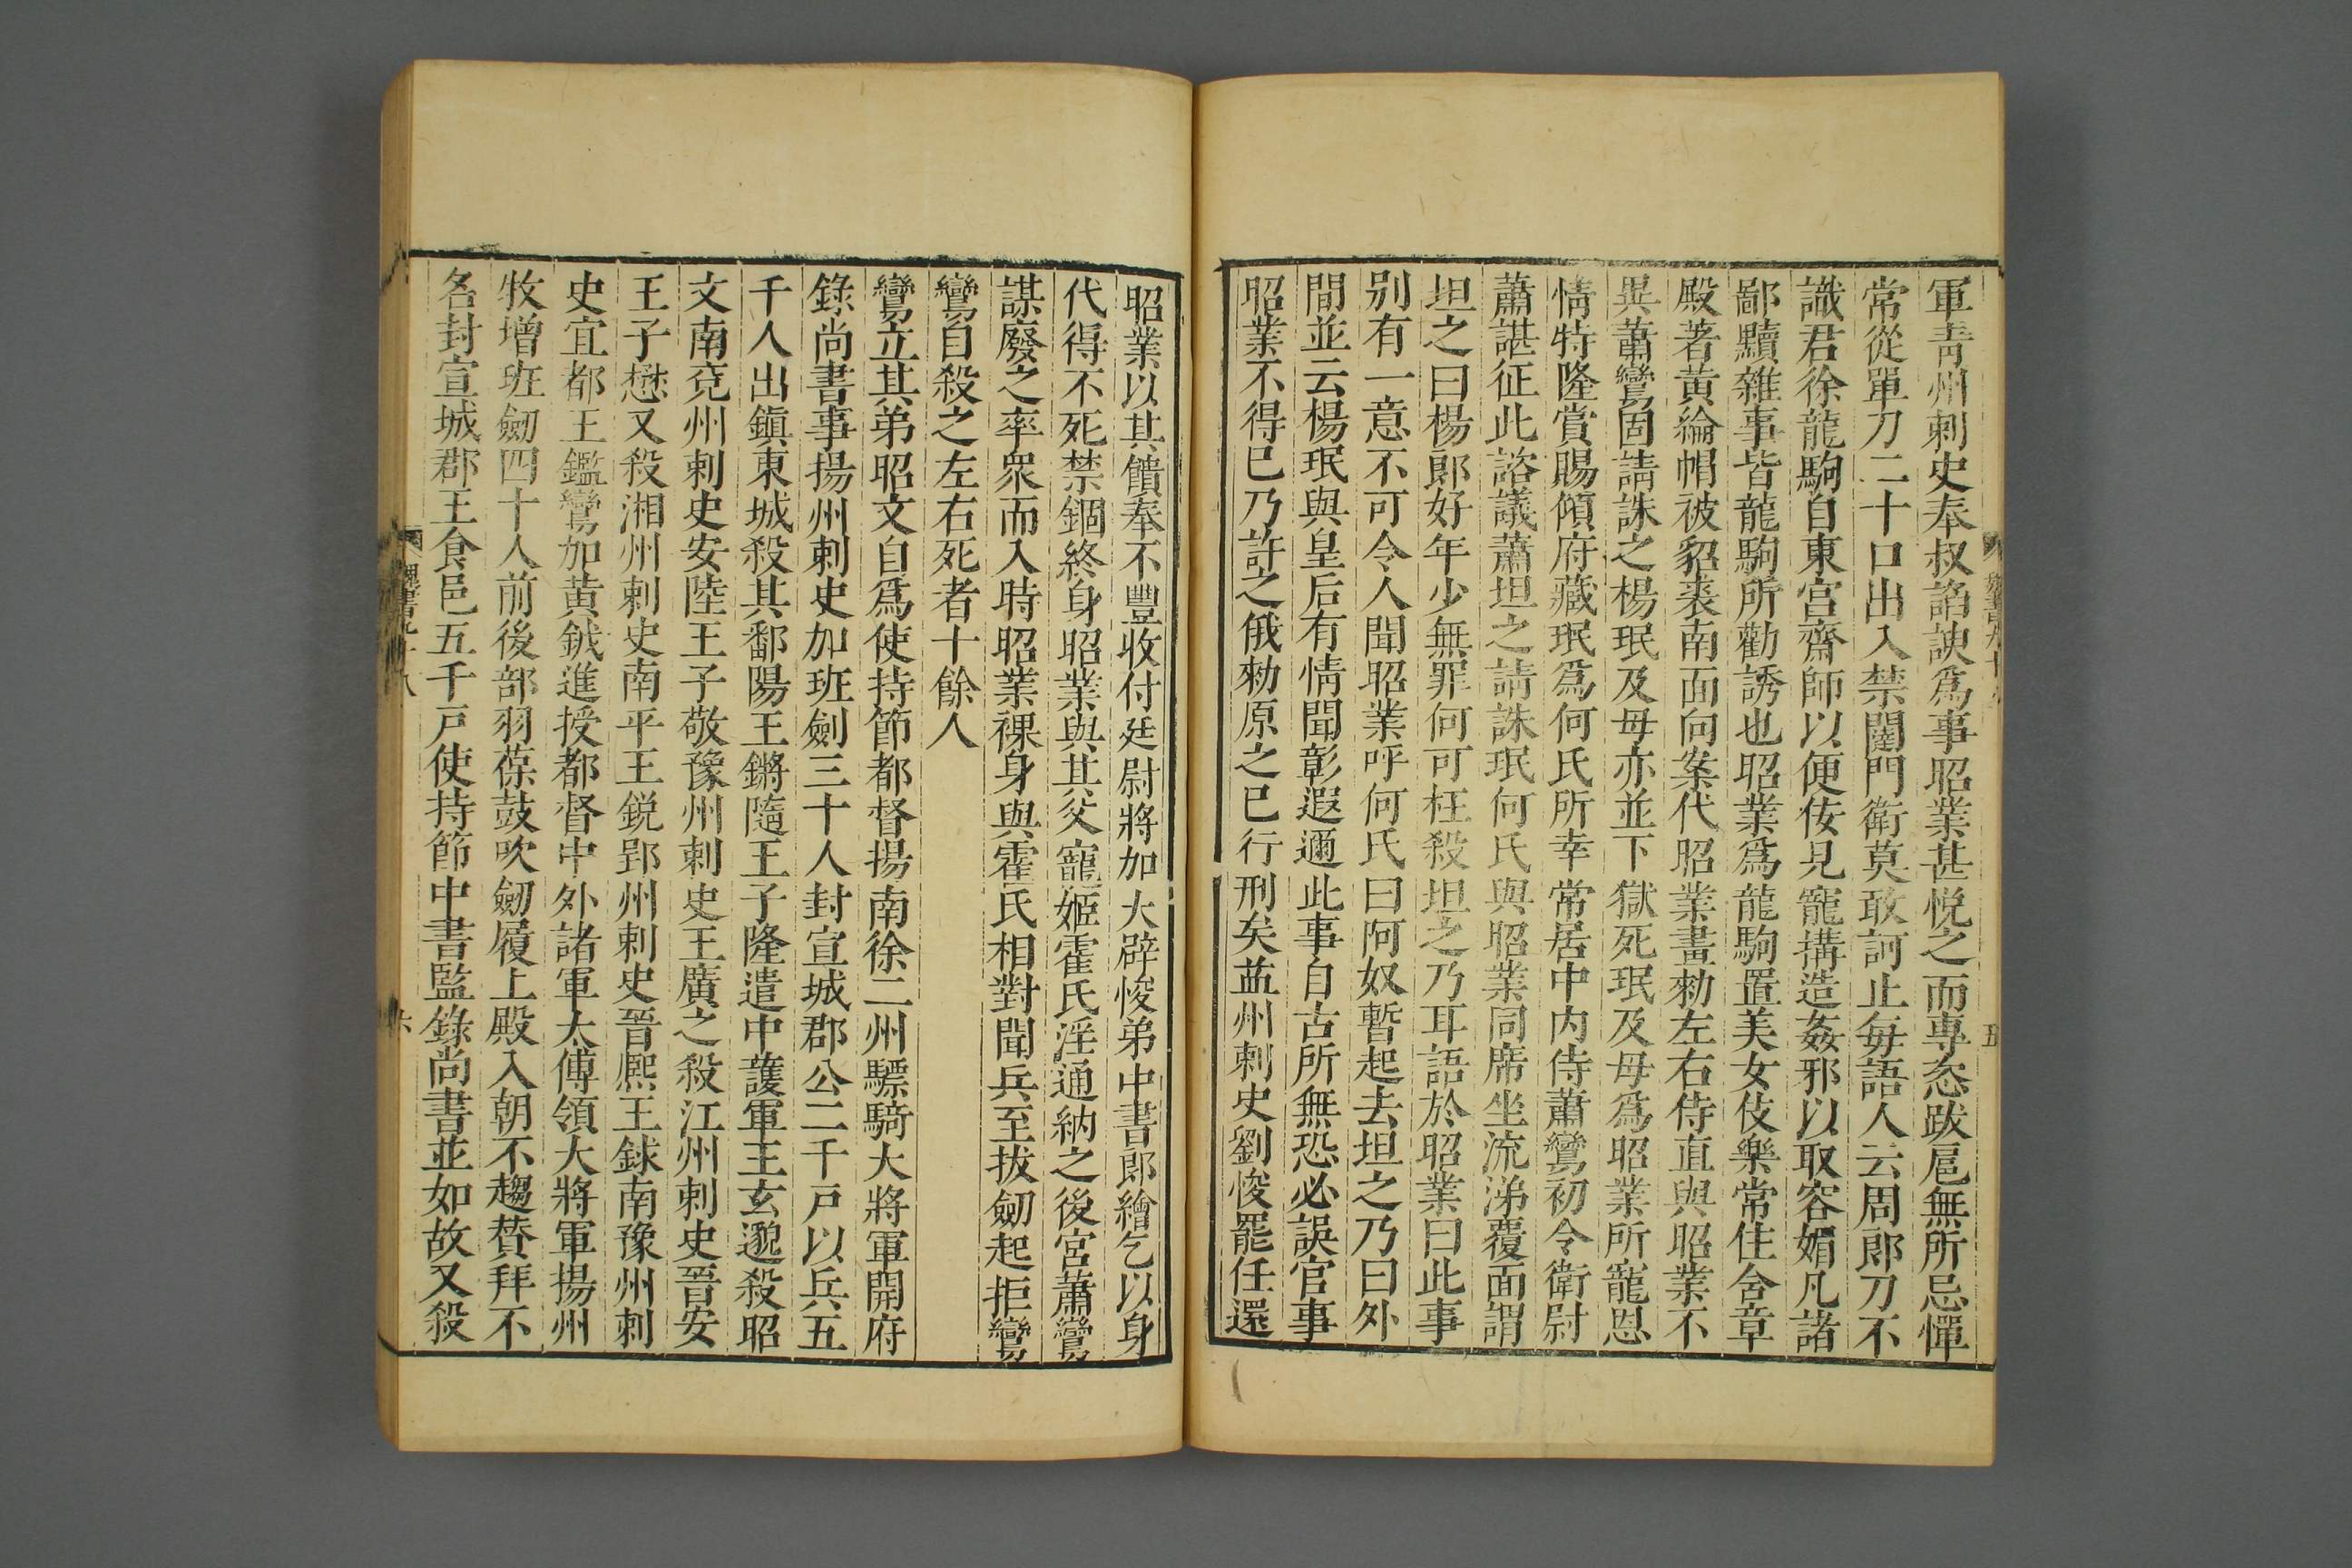 軍青州刺史奉叔諂諛爲事昭業甚悅之而專恣跋扈無所忌憚
常從單刀二十口出入禁闥門衛莫敢訶止每語人云周郎刀不
識君徐龍駒自東宮齋師以便佞見寵搆造姦邪以取容媚凡諸
鄙黷雜事皆龍駒所勸誘也昭業爲龍駒置美女伎樂常住含章
殿著黃綸帽被貂裘南面向案代昭業畫勑左右侍直與昭業不
異蕭鸞固請誅之楊珉及母亦並下獄死珉及母爲昭業所寵恩
情特隆賞賜傾府藏珉爲何氏所幸常居中内侍蕭鸞初令衛尉
蕭諶征此諮議蕭坦之請誅珉何氏與昭業同席坐流涕覆面謂
坦之曰楊郎好年少無罪何可枉殺坦之乃耳語於昭業曰此事
别有一意不可令人聞昭業呼何氏曰阿奴暫起去坦之乃曰外
間並云楊珉與皇后有情聞彰遐邇此事自古所無恐必誤官事
昭業不得已乃許之俄勑原之已行刑矣益州刺史劉悛罷任還
昭業以其饋奉不豐收付廷尉將加大辟悛弟中書郎繪乞以身
代得不死禁錮終身昭業與其父寵姬霍氏淫通納之後宮蕭鸞
謀廢之率衆而入時昭業裸身與霍氏相對聞兵至拔劒起拒鸞
鸞自殺之左右死者十餘人
鸞立其弟昭文自爲使持節都督揚南徐二州驃騎大將軍開府
錄尚書事揚州刺史加班劍三十人封宣城郡公二千戶以兵五
千人出鎭東城殺其鄱陽王鏘隨王子隆遣中護軍王玄邈殺昭
文南兗州刺史安陸王子敬豫州刺史王廣之殺江州刺史晉安
王子懋又殺湘州刺史南平王銳郢州刺史晉熙王銶南豫州刺
史宜都王鑑鸞加黃鉞進授都督中外諸軍太傅領大將軍揚州
牧增班劒四十人前後部羽葆鼓吹劒履上殿入朝不趨贊拜不
名封宣城郡王食邑五千戶使持節中書監錄尚書並如故又殺
魏書九十八
六